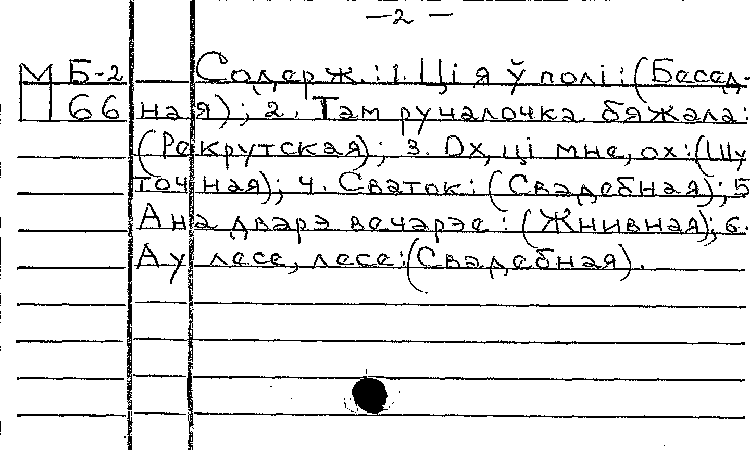 —2—
М Б-2 Содерж.: 1. Ці я ў полі: (Бесед-
66 ная); 2. Там ручалочка бяжала:
(Рекрутская); 3. Ох, ці мне, ох: (Шу
точная); 4. Сваток: (Свадебная); 5
А на дварэ вечарэе: (Жнивная); 6.
А у лесе, лесе: (Свадебная).